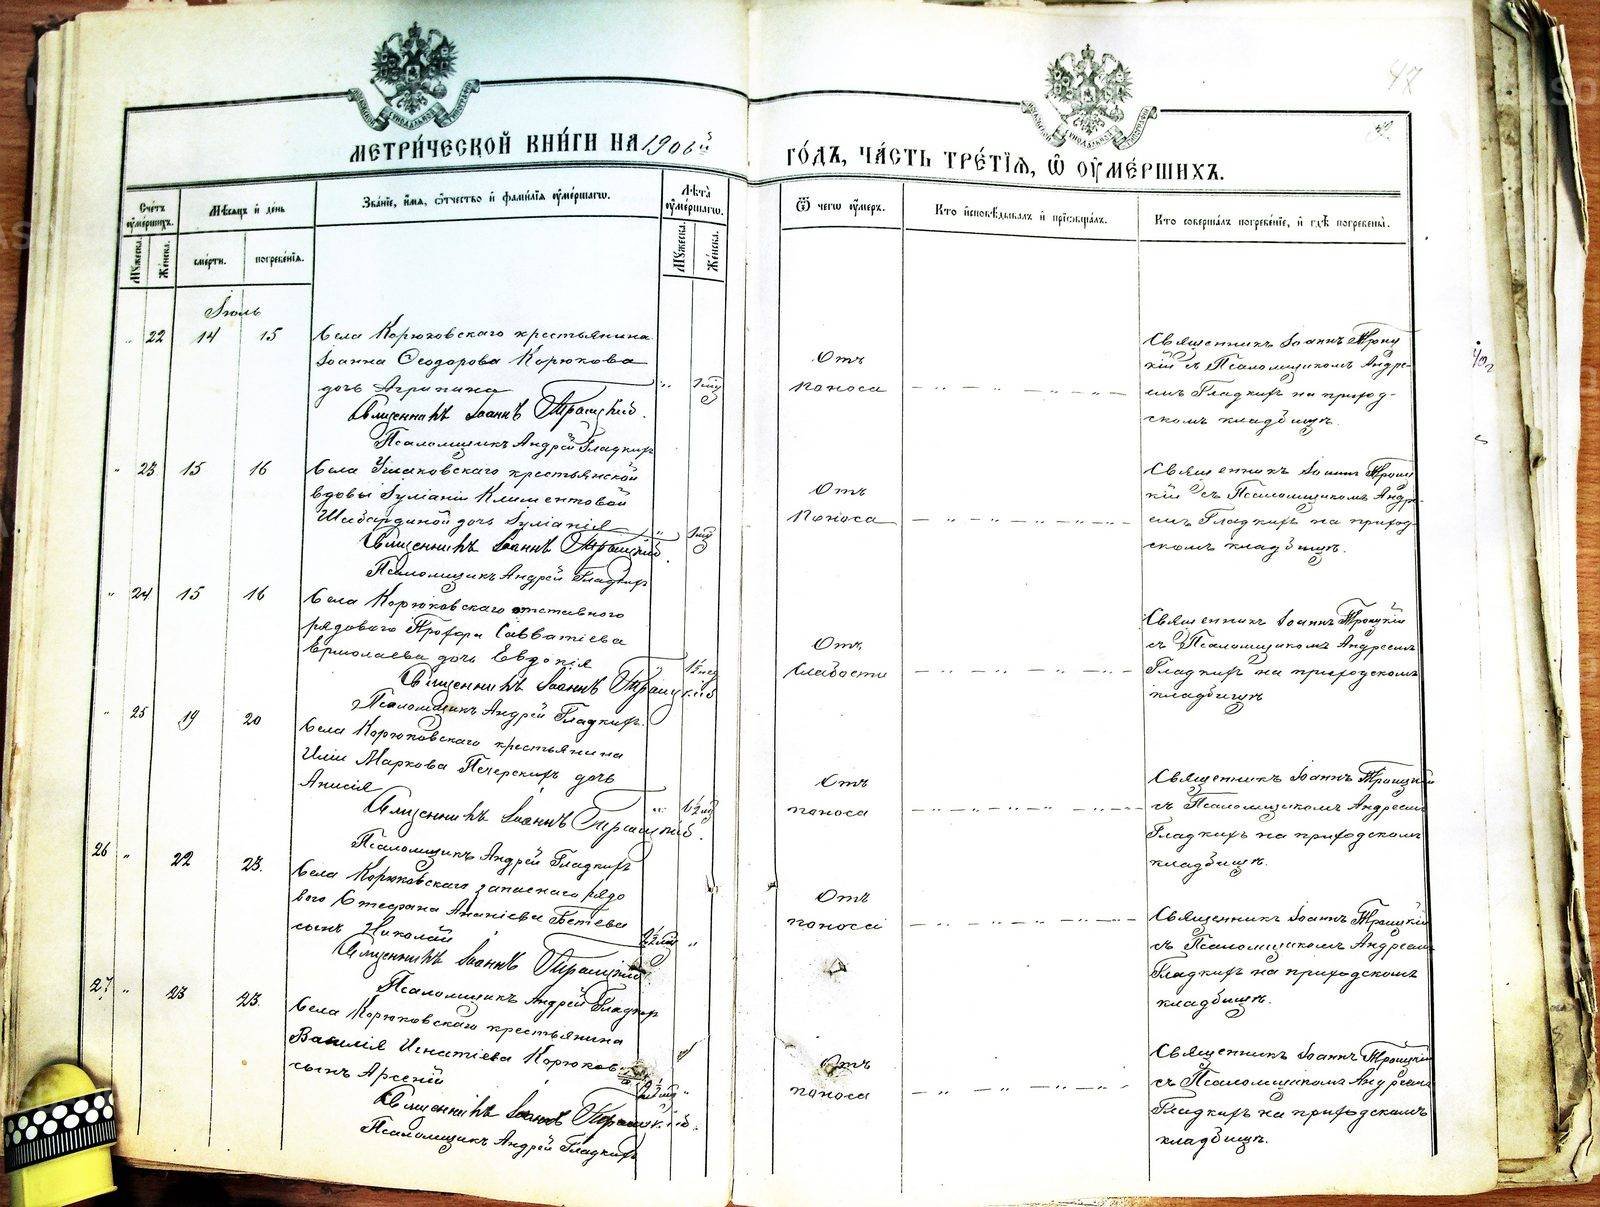 47
МЕТРИ́ЧЕСКОЙ КНИ́ГИ НА 1906й ГО́ДЪ, ЧА́СТЬ ТРЕ́ТІѦ, Ѿ ОУМЕ́РШИХЪ.
Сче́тъ оуме́ршихъ.
Мꙋжеска.
Же́нска.
Мѣ́сѧцъ и҆ де́нь
сме́рти.
погребе́нїѧ.
Зва́нїе, и҆́мѧ, ѻ҆́тчество и҆ фами́лїѧ оуме́ршагѡ.
Лѣ́та оуме́ршагѡ.
Мꙋжеска.
Же́нска.
Ѿ чегѡ̀ оу́меръ.
Кто̀ и҆сповѣ́дывалъ и҆ прїѡбща́лъ.
Кто̀ соверша́лъ погребе́нїе, и҆ гдѣ̀ погребены̀.
Іюль
" 22 14 15
Села Корюковскаго крестьянина
Іоанна Ѳеодорова Корюкова
дочь Агрипина
Священникъ Іоаннъ Троицкій.
Псаломщикъ Андрей Гладкихъ
Отъ
поноса
Священникъ Іоаннъ Троиц
кій съ Псаломщикомъ Андре-
емъ Гладкихъ на приход-
скомъ кладбищѣ.
" 23 15 16
Села крестьянской
вдовы Іуліаніи Климентовой
Шабардиной дочь Іуліанія
Священникъ Іоаннъ Троицкій
Псаломщикъ Андрей Гладкихъ
Отъ
Поноса
Священникъ Іоаннъ Троиц
кій съ Псаломщикомъ Андре-
емъ Гладкихъ на приход-
скомъ кладбищѣ.
" 24 15 16
Села Корюковскаго отставного
рядового Прохора Савватіева
Ермолаева дочь Евдокія
Священникъ Іоаннъ Троицкій
Псаломщикъ Андрей Гладкихъ.
Отъ
слабости
Священникъ Іоаннъ Троицкій
съ Псаломщикомъ Андреемъ
Гладкихъ на приходскомъ
кладбищѣ
" 25 19 20
Села Корюковскаго крестьянина
Иліи Маркова Печерскихъ дочь
Анисія
Священникъ Іоаннъ Троицкій.
Псаломщикъ Андрей Гладкихъ
Отъ
поноса
Священникъ Іоаннъ Троицкій
съ Псаломщикомъ Андреемъ
Гладкихъ на приходскомъ
кладбищѣ.
26 " 22 23.
Села Корюковскаго запаснаго рядо
вого Стефана Ананіева Бетева
сынъ Николай
Священникъ Іоаннъ Троицкій
Псаломщикъ Андрей Гладкихъ
Отъ
поноса
Священникъ Іоаннъ Троицкій
съ Псаломщикомъ Андреемъ
Гладкихъ на приходскомъ
кладбищѣ.
27. " 23 23.
Села Корюковскаго крестьянина
Василія Игнатіева Корюкова
сынъ Арсеній
Священникъ Іоаннъ Троицкій.
Псаломщикъ Андрей Гладкихъ
Отъ
поноса
Священникъ Іоаннъ Троицкій
съ Псаломщикомъ Андреемъ
Гладкихъ на приходскомъ
кладбищѣ.